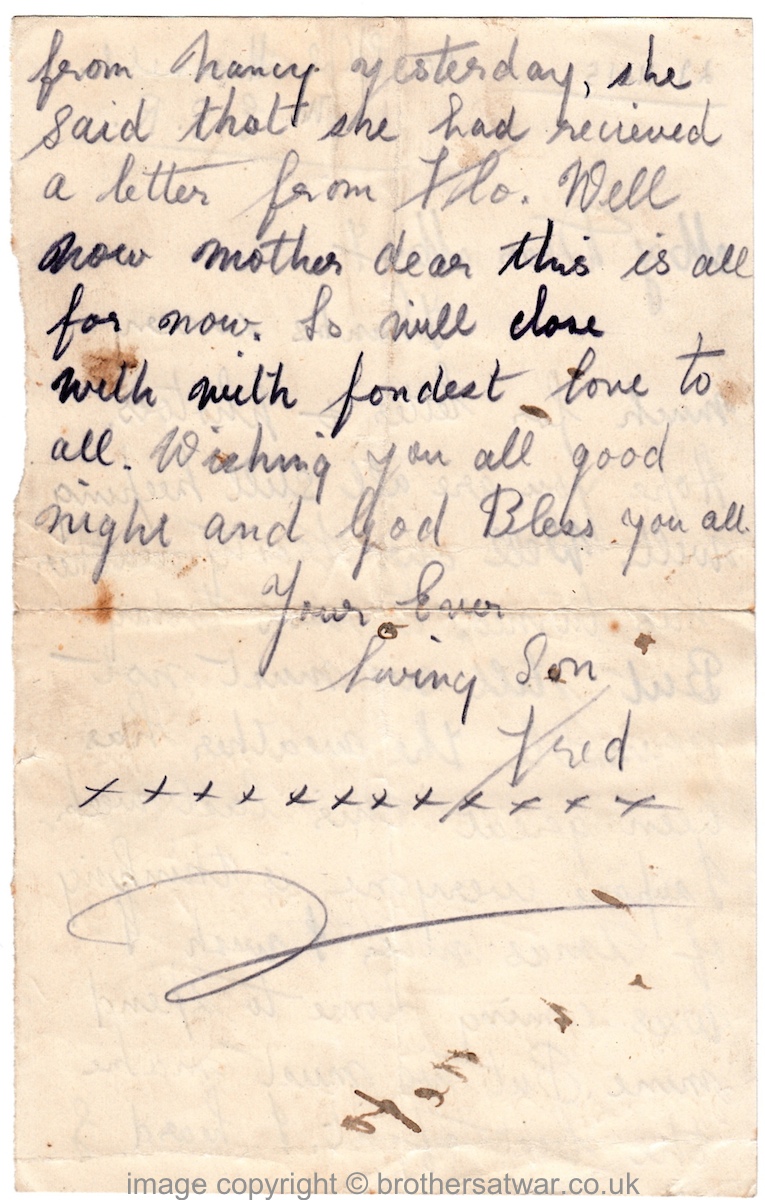 from Nancy yesterday, she
said that she had recieved
a letter from Flo. Well
now mother dear this is all
for now. So will close
with with fondest love to
all. Wishing you all good
night and God Bless you all.
Your Ever
Loving Son
Fred
x x x x x x x x x x x x
image copyright © brothersatwar.co.uk